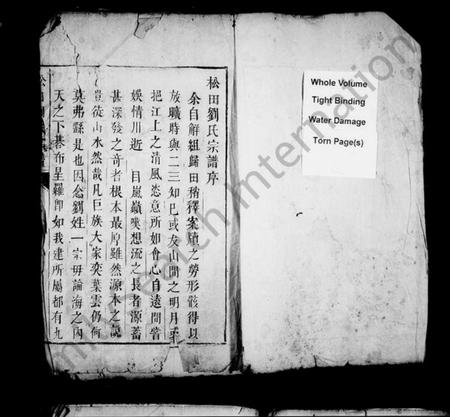 松田劉氏宗譜序
余自解組歸田稍釋案牘之勞形骸得以
放職時與二三知己或友山間之明月或
挹江上之清風恣意所如會心自遠間嘗
娛情川逝目嵐巔興想流之長者源蓄
甚深發之奇者根本最厚雖然源本之說
豈從山水然哉凡巨族大家奕葉雲仍何
莫弗繇是也因念劉姓一宗毋論海之內
天之下碁布星羅即如我建所屬都有九
松田劉
Whole Volume
Tight Binding
Water Damage
Torn Page(s)